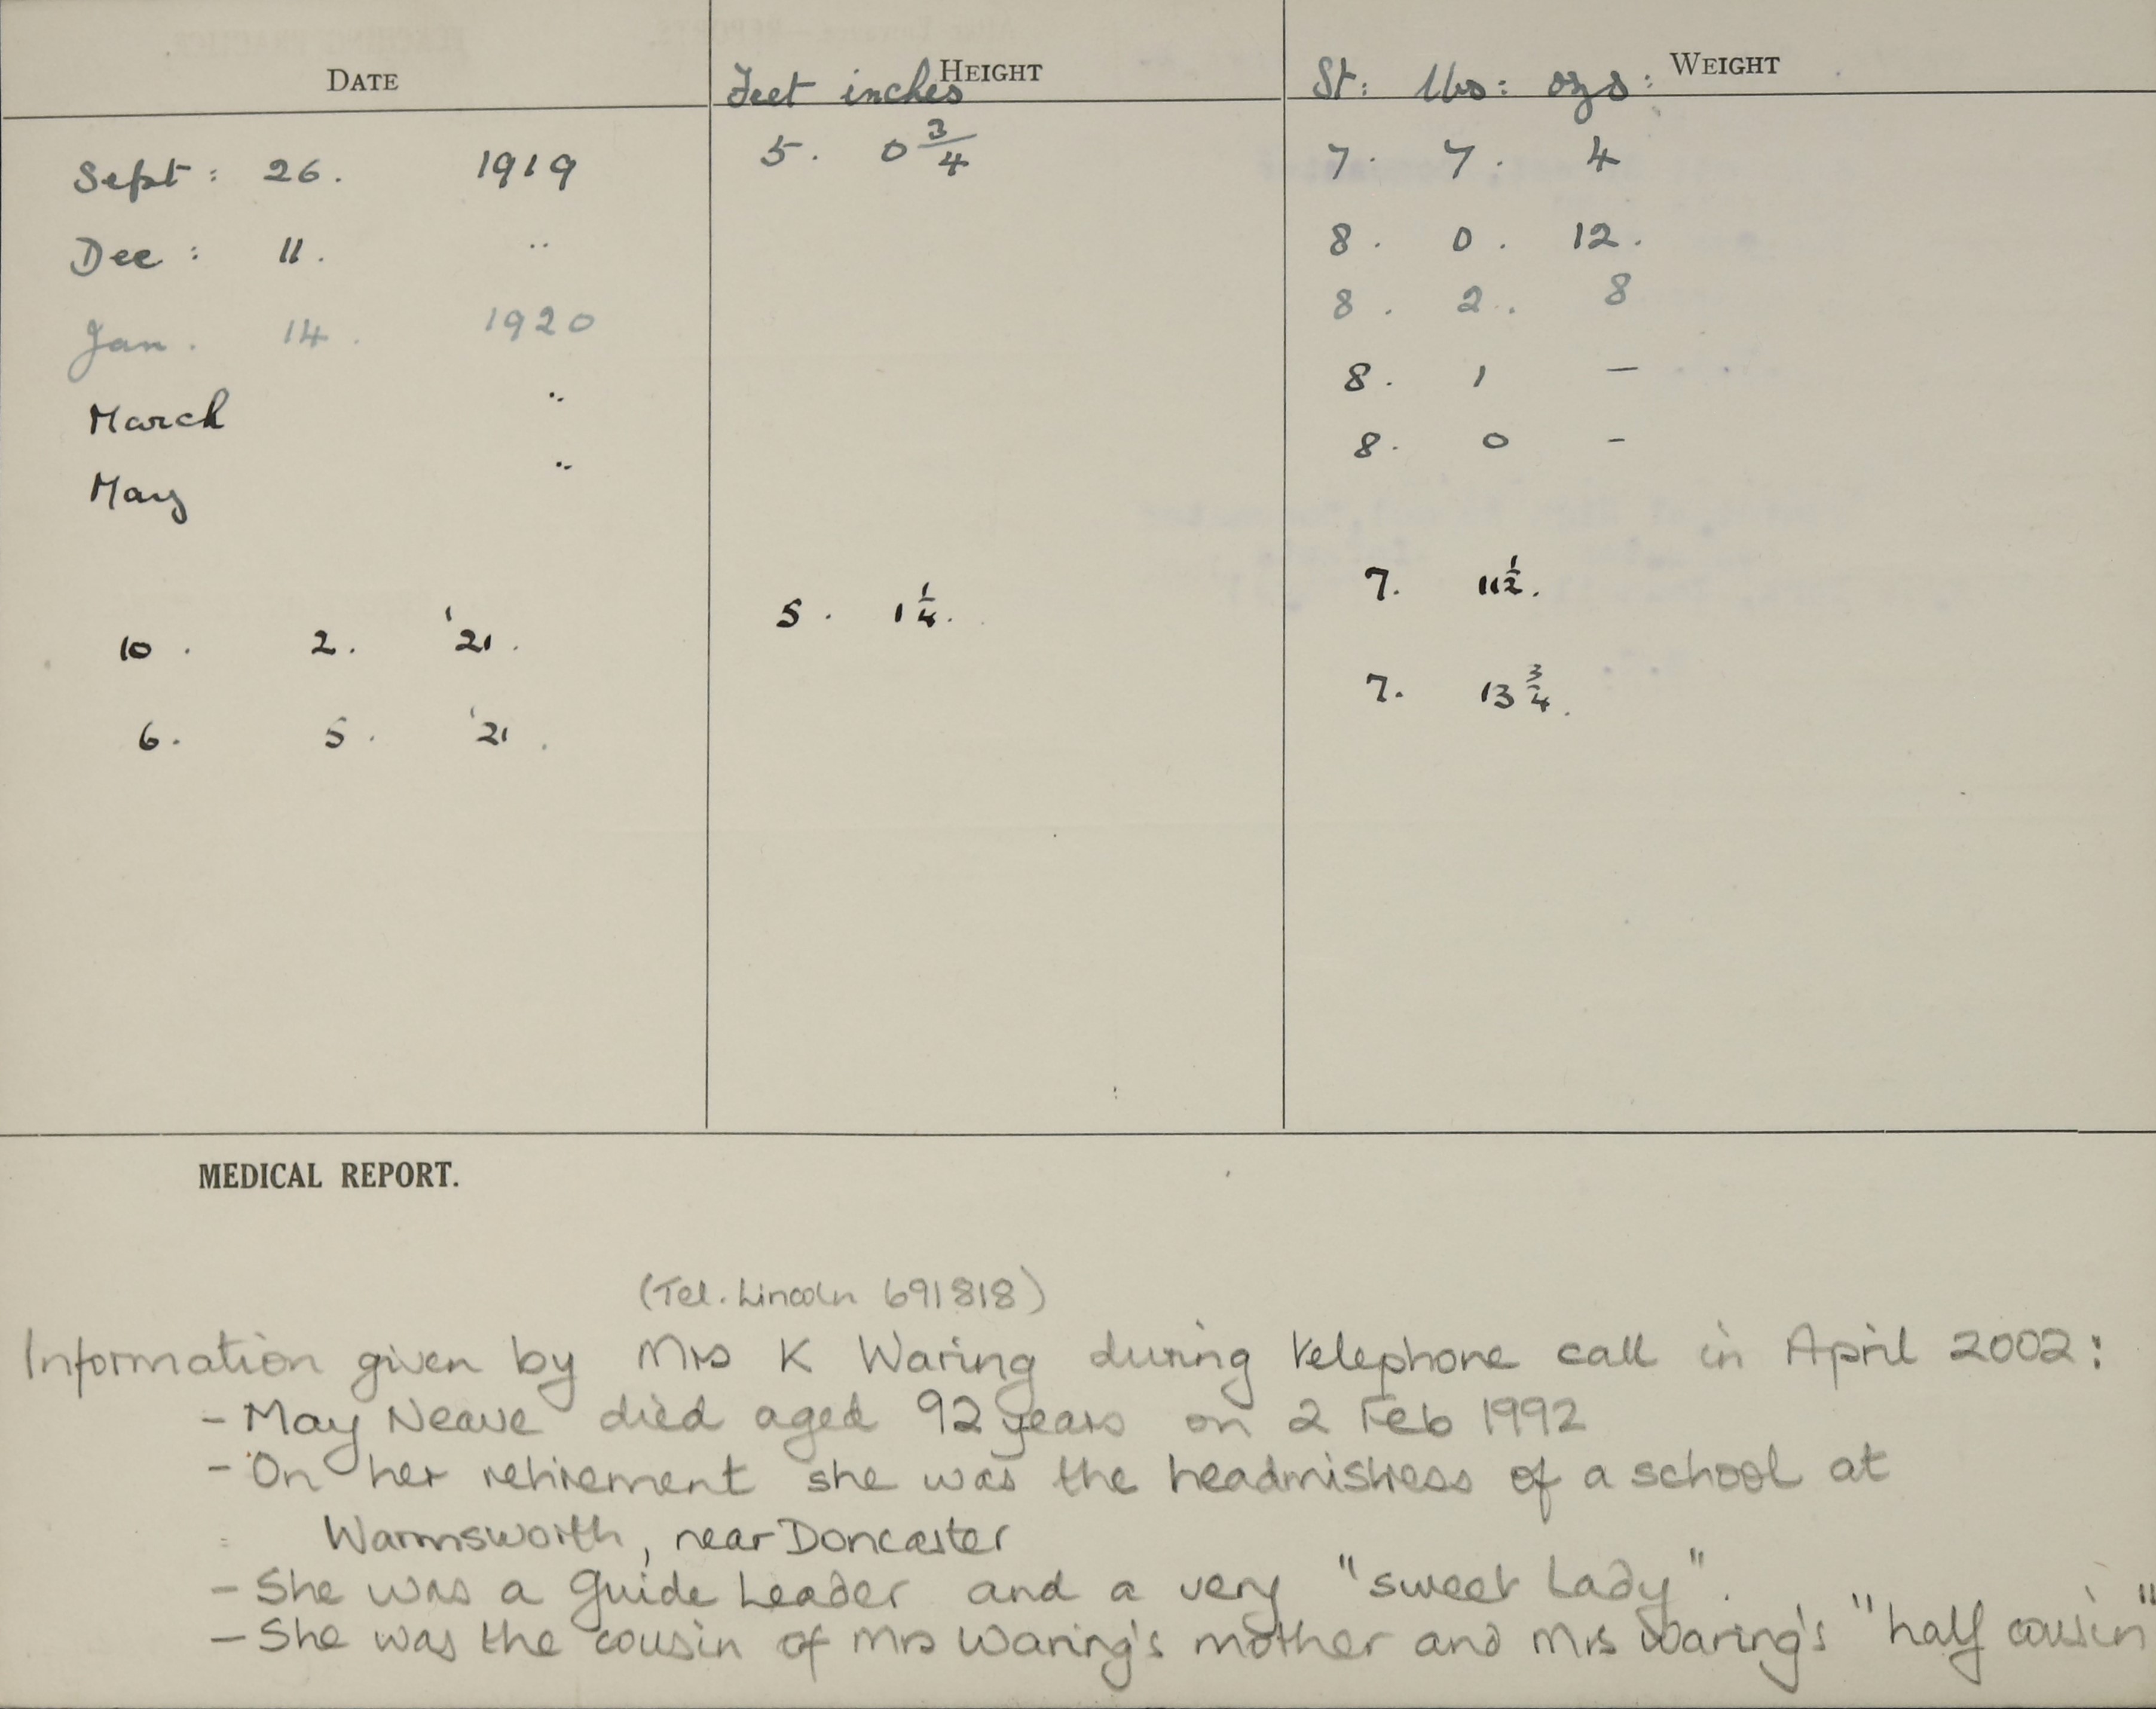 DATE HEIGHT WEIGHT
Feet inches St: lbs: ozs:
Sept: 26. 1919 5. 0 3/4 7. 7. 4
Dec: 11. " 8. 0. 12.
Jan. 14. 1920 8. 2. 8
March " 8. 1 –
May " 8. 0 –
10. 2. '21. 5. 1 1/4. 7. 11 1/2.
6. 5. '21. 7. 13 3/4.
MEDICAL REPORT.
(Tel. Lincoln 691818)
Information given by Mrs K Waring during telephone call in April 2002:
- May Neave died aged 92 years on 2 Feb 1992
- On her retirement she was the headmistress of a school at
Warmsworth, near Doncaster
- She was a Guide Leader and a very "sweet Lady".
- She was the cousin of Mrs Waring's mother and Mrs Waring's "half cousin"